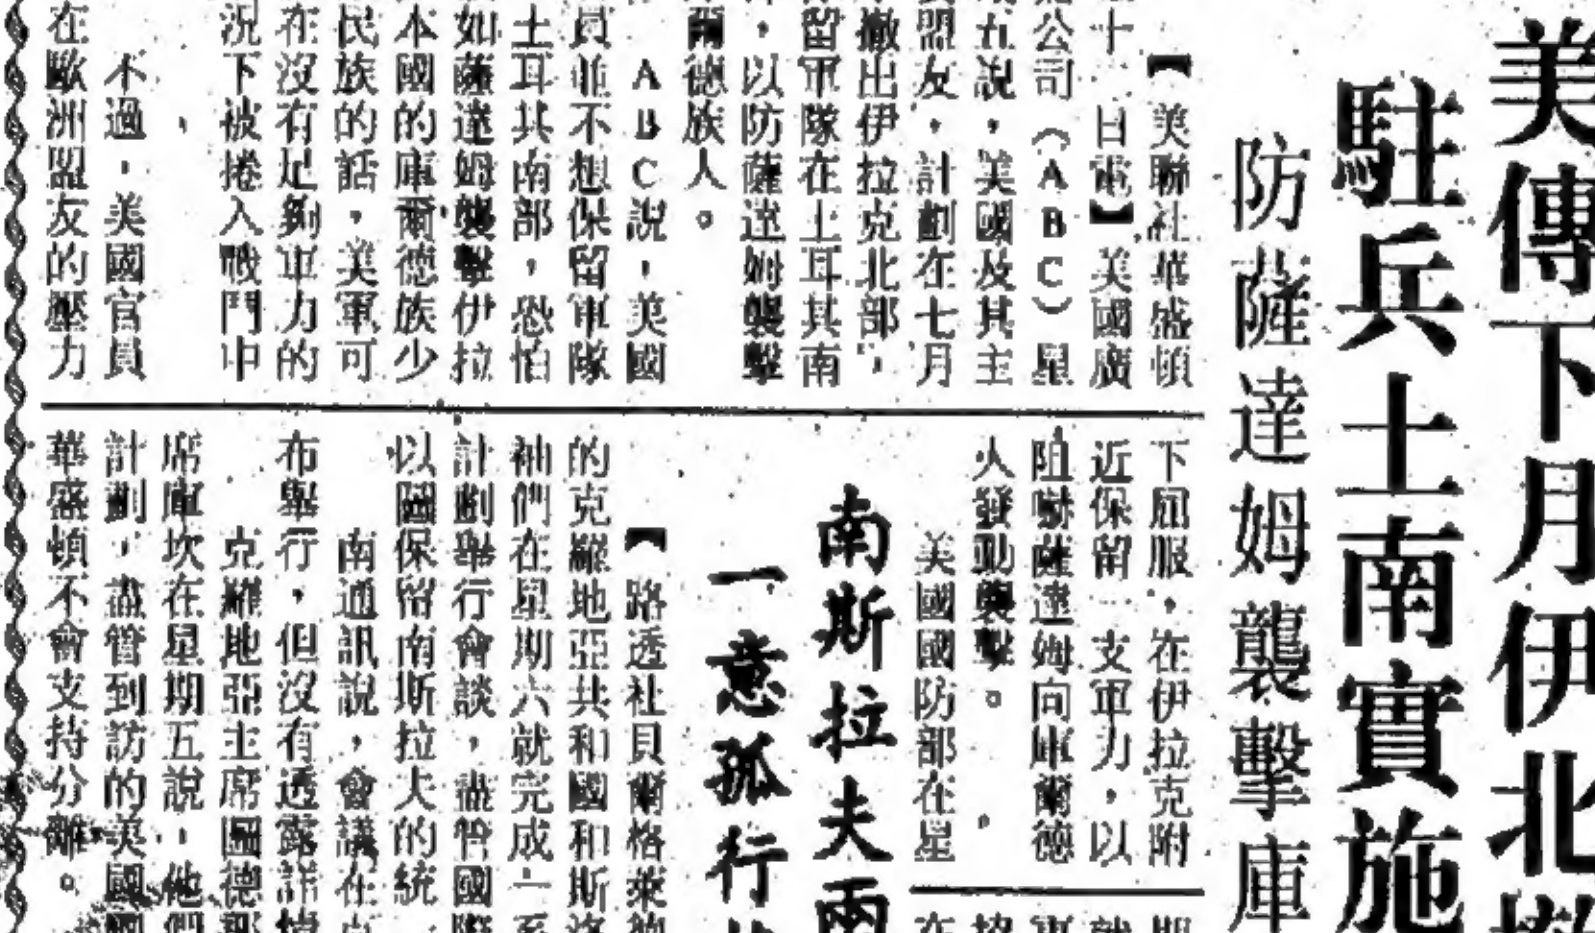 美傳下月伊北撤
駐兵土南實施
防薩達姆襲擊庫
【美聯社華盛頓
十一日電】美國廣
公司（ABC）星
五說，美國及其主
盟友，計劃在七月
撤出伊拉克北部，
留軍隊在土耳其南
，以防薩達姆襲擊
爾德族人。
ABC說，美國
員並不想保留軍隊
土耳其南部，恐怕
如薩達姆襲擊伊拉
本國的庫爾德族少
民族的話，美軍可
在沒有足夠軍力的
況下被捲入戰鬥中
，
不過，美國官員
在歐洲盟友的壓力
下屈服，在伊拉克附
近保留一支軍力，以
阻嚇薩達姆向庫爾德
人發動襲擊。
美國國防部在星
南斯拉夫兩
一意孤行
【路透社貝爾格萊德
的克羅地亞共和國和斯洛
袖們在星期六就完成一系
計劃舉行會談，儘管國際
以圖保留南斯拉夫的統
南通訊說，會議在
布舉行，但沒有透露詳情
克羅地亞主席圖德那
席庫坎在星期五說，他們
計劃，盡管到訪的美國國
華盛頓不會支持分離。